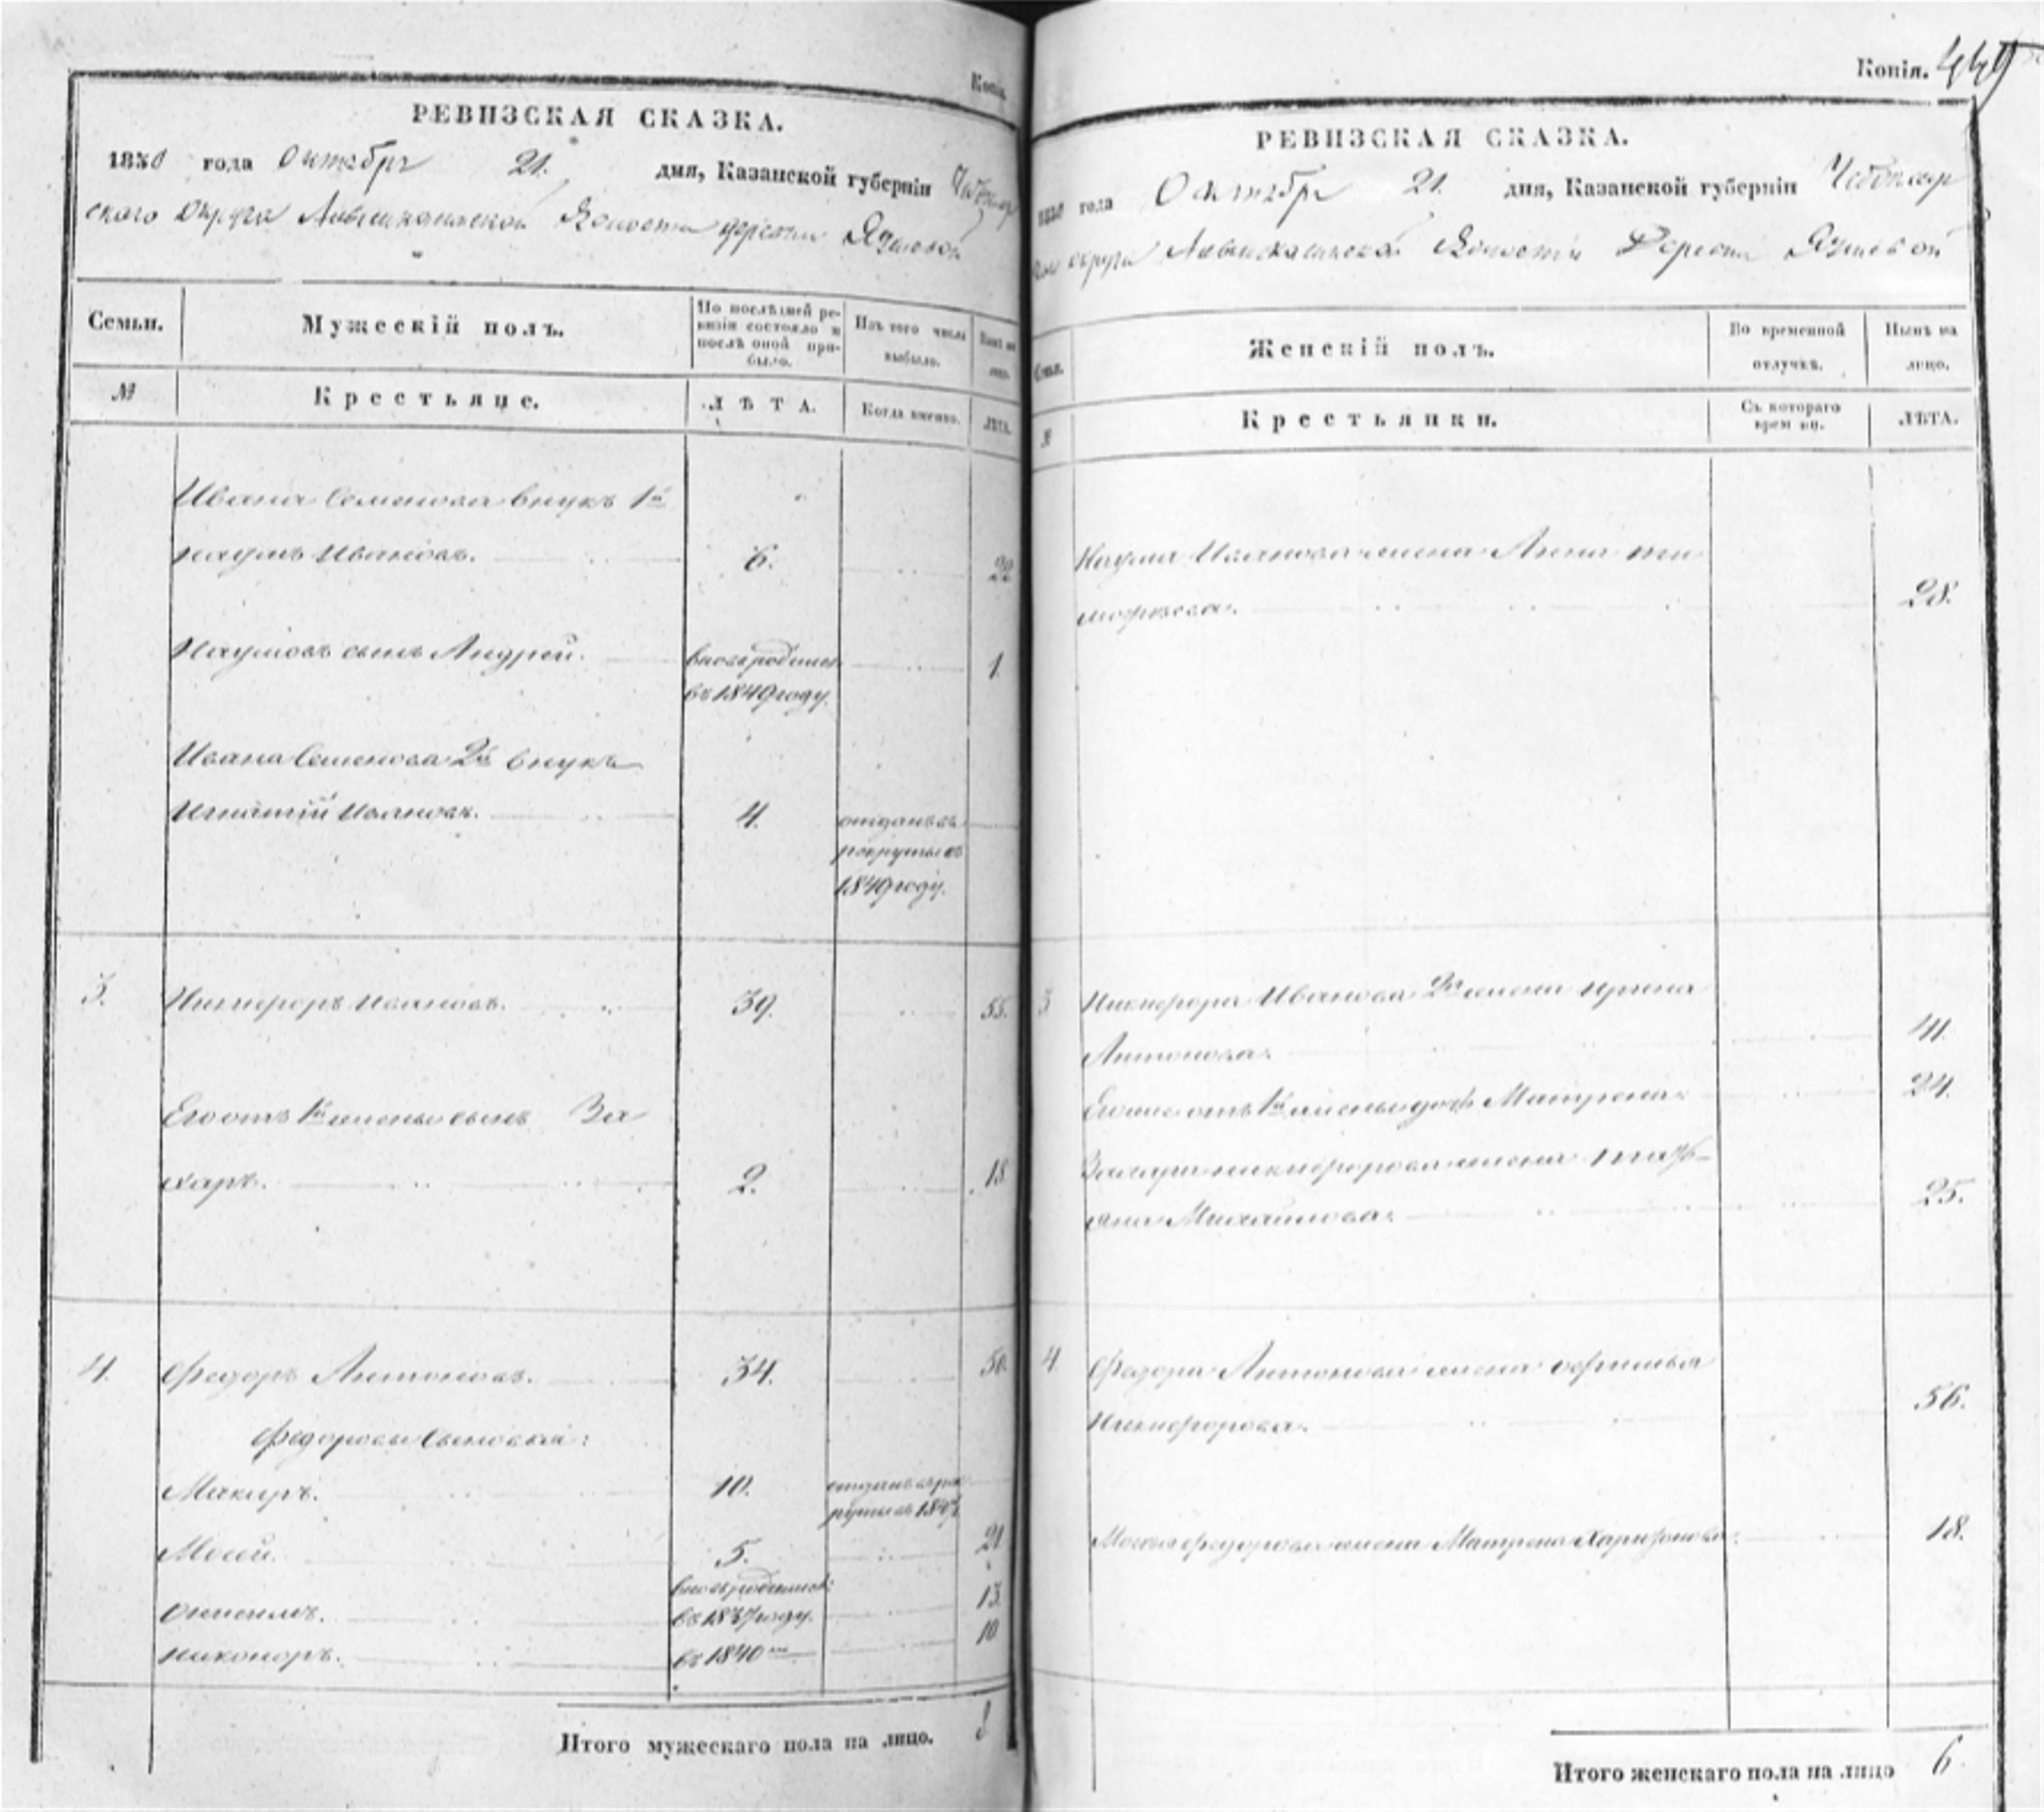 Копія.
РЕВИЗСКАЯ СКАЗКА.
1850 года Октября 21. дня, Казанской губерніи Чебоксар
скаго Округа Волости деревни
Семьи.
Мужескій полъ.
По послѣдней ре-
визіи состояло и
послѣ оной при-
было.
Изъ того числа
выбыло.
Нынѣ на
лицо.
№
Крестьяне.
ЛѢТА.
Когда именно.
ЛѢТА.
Ивана Семенова внукъ 1й
Наумъ Ивановъ. 6. 22
Наумовъ сынъ Андрей. вновь рожденъ 1.
въ 1849 году.
Ивана Семенова 2й внукъ
Игнатій Ивановъ. 4. отданъ въ
рекруты въ
1849 году.
3. Никифоръ Ивановъ. 39. 55.
Его отъ 1й жены сынъ За
харъ. 2. 18
4. Федоръ Антоновъ. 34. 50.
Федоровы сыновья:
Макаръ. 10. отданъ въ рек
руты въ
Мосей. 5. 21
вновь рожденный
Онисимъ. въ 1837 году. 13.
Никоноръ. въ 1840 10
Итого мужескаго пола на лицо. 8
Копія. 449
РЕВИЗСКАЯ СКАЗКА.
1850 года Октября 21. дня, Казанской губерніи Чебоксар
скаго округа Волости Деревни
Семьи.
Женскій полъ.
Во временной
отлучкѣ.
Нынѣ на
лицо.
№
Крестьянки.
Съ котораго
времени.
ЛѢТА.
Наума Иванова жена Анна Ти
мофеева. 28.
3 Никифора Иванова 2я жена Ирина
Антонова. 41.
Его же отъ 1й жены дочь Матрена 24.
Захара Никифорова жена Тать-
яна Михайлова. 25.
4 Федора Антонова жена Офимья
Никифорова. 56.
Мосея Федорова жена Матрена Харитонова. 18.
Итого женскаго пола на лицо 6.